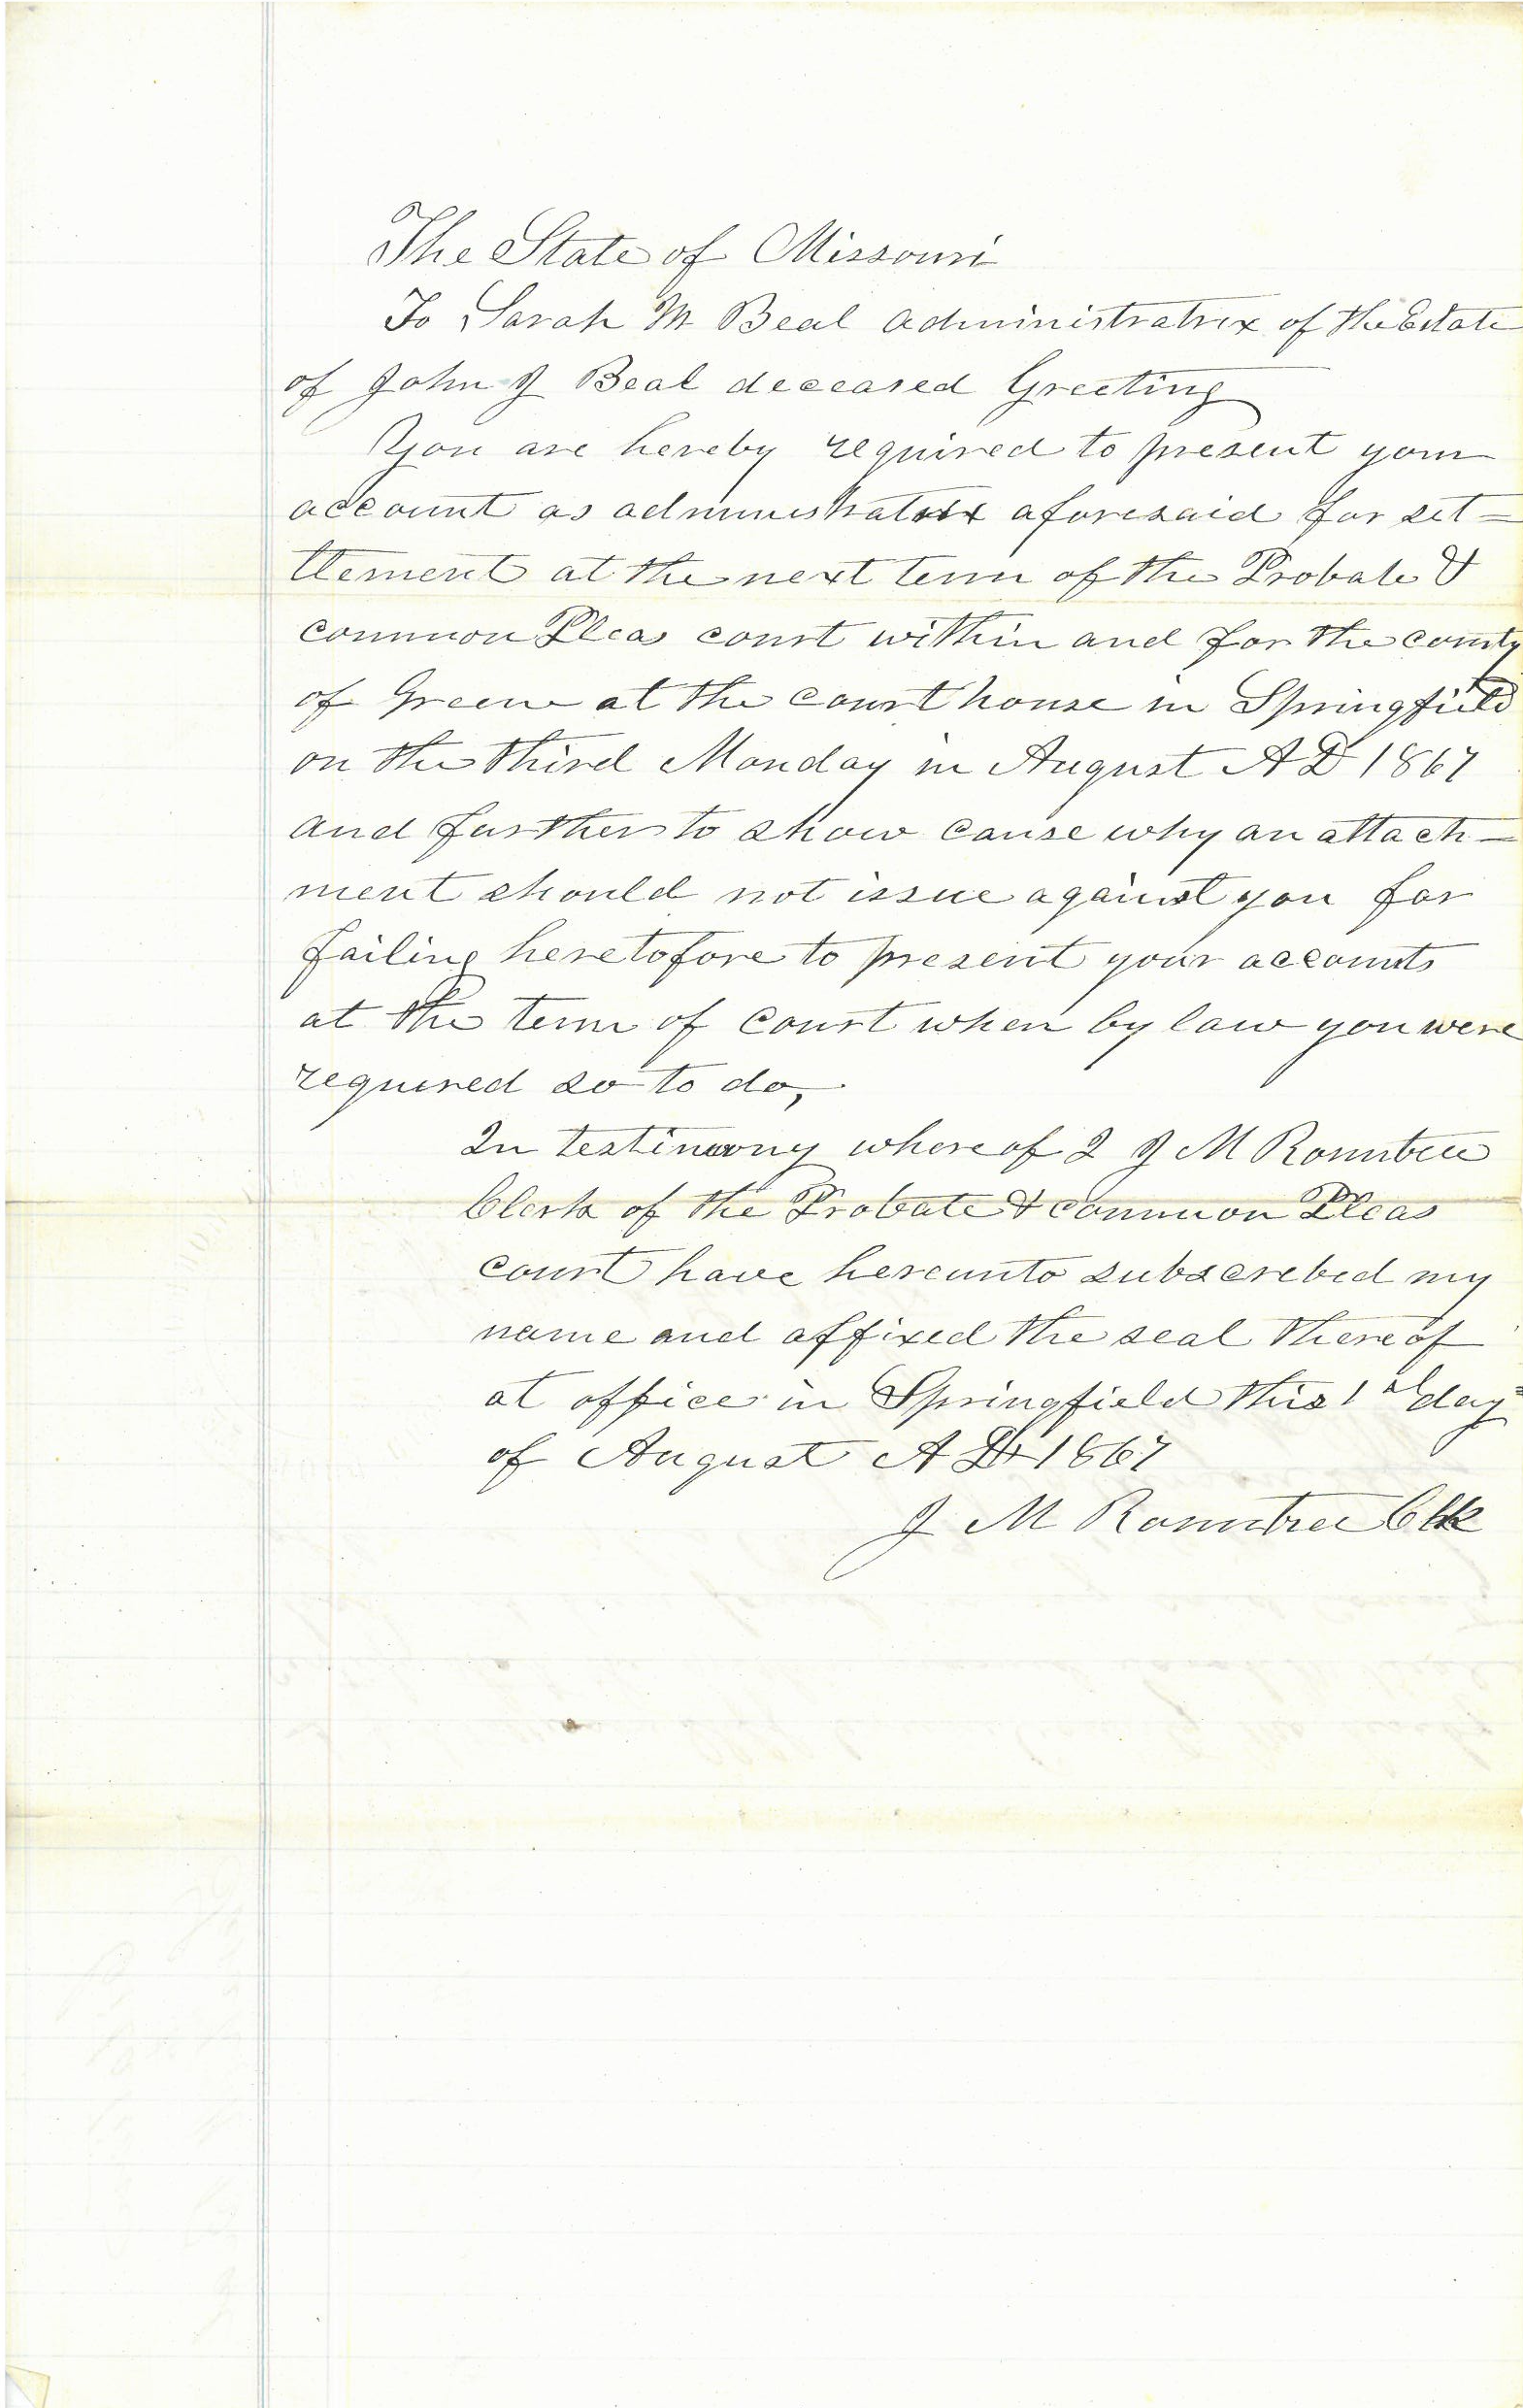 The State of Missouri
To Sarah M Beal administratrix of the Estate
of John J Beal deceased Greeting
You are hereby required to present your
account as administratrix aforesaid for set=
tlement at the next term of the Probate &
common Pleas court within and for the county
of Greene at the court house in Springfield
on the third Monday in August A D 1867
and further to show cause why an attach-
ment should not issue against you for
failing heretofore to present your accounts
at the term of court when by law you were
required so to do,
In testimony whereof I J M Rountree
Clerk of the Probate & common Pleas
court have hereunto subscribed my
name and affixed the seal thereof
at office in Springfield this 1st day
of August A D 1867
J M Rountree Clk